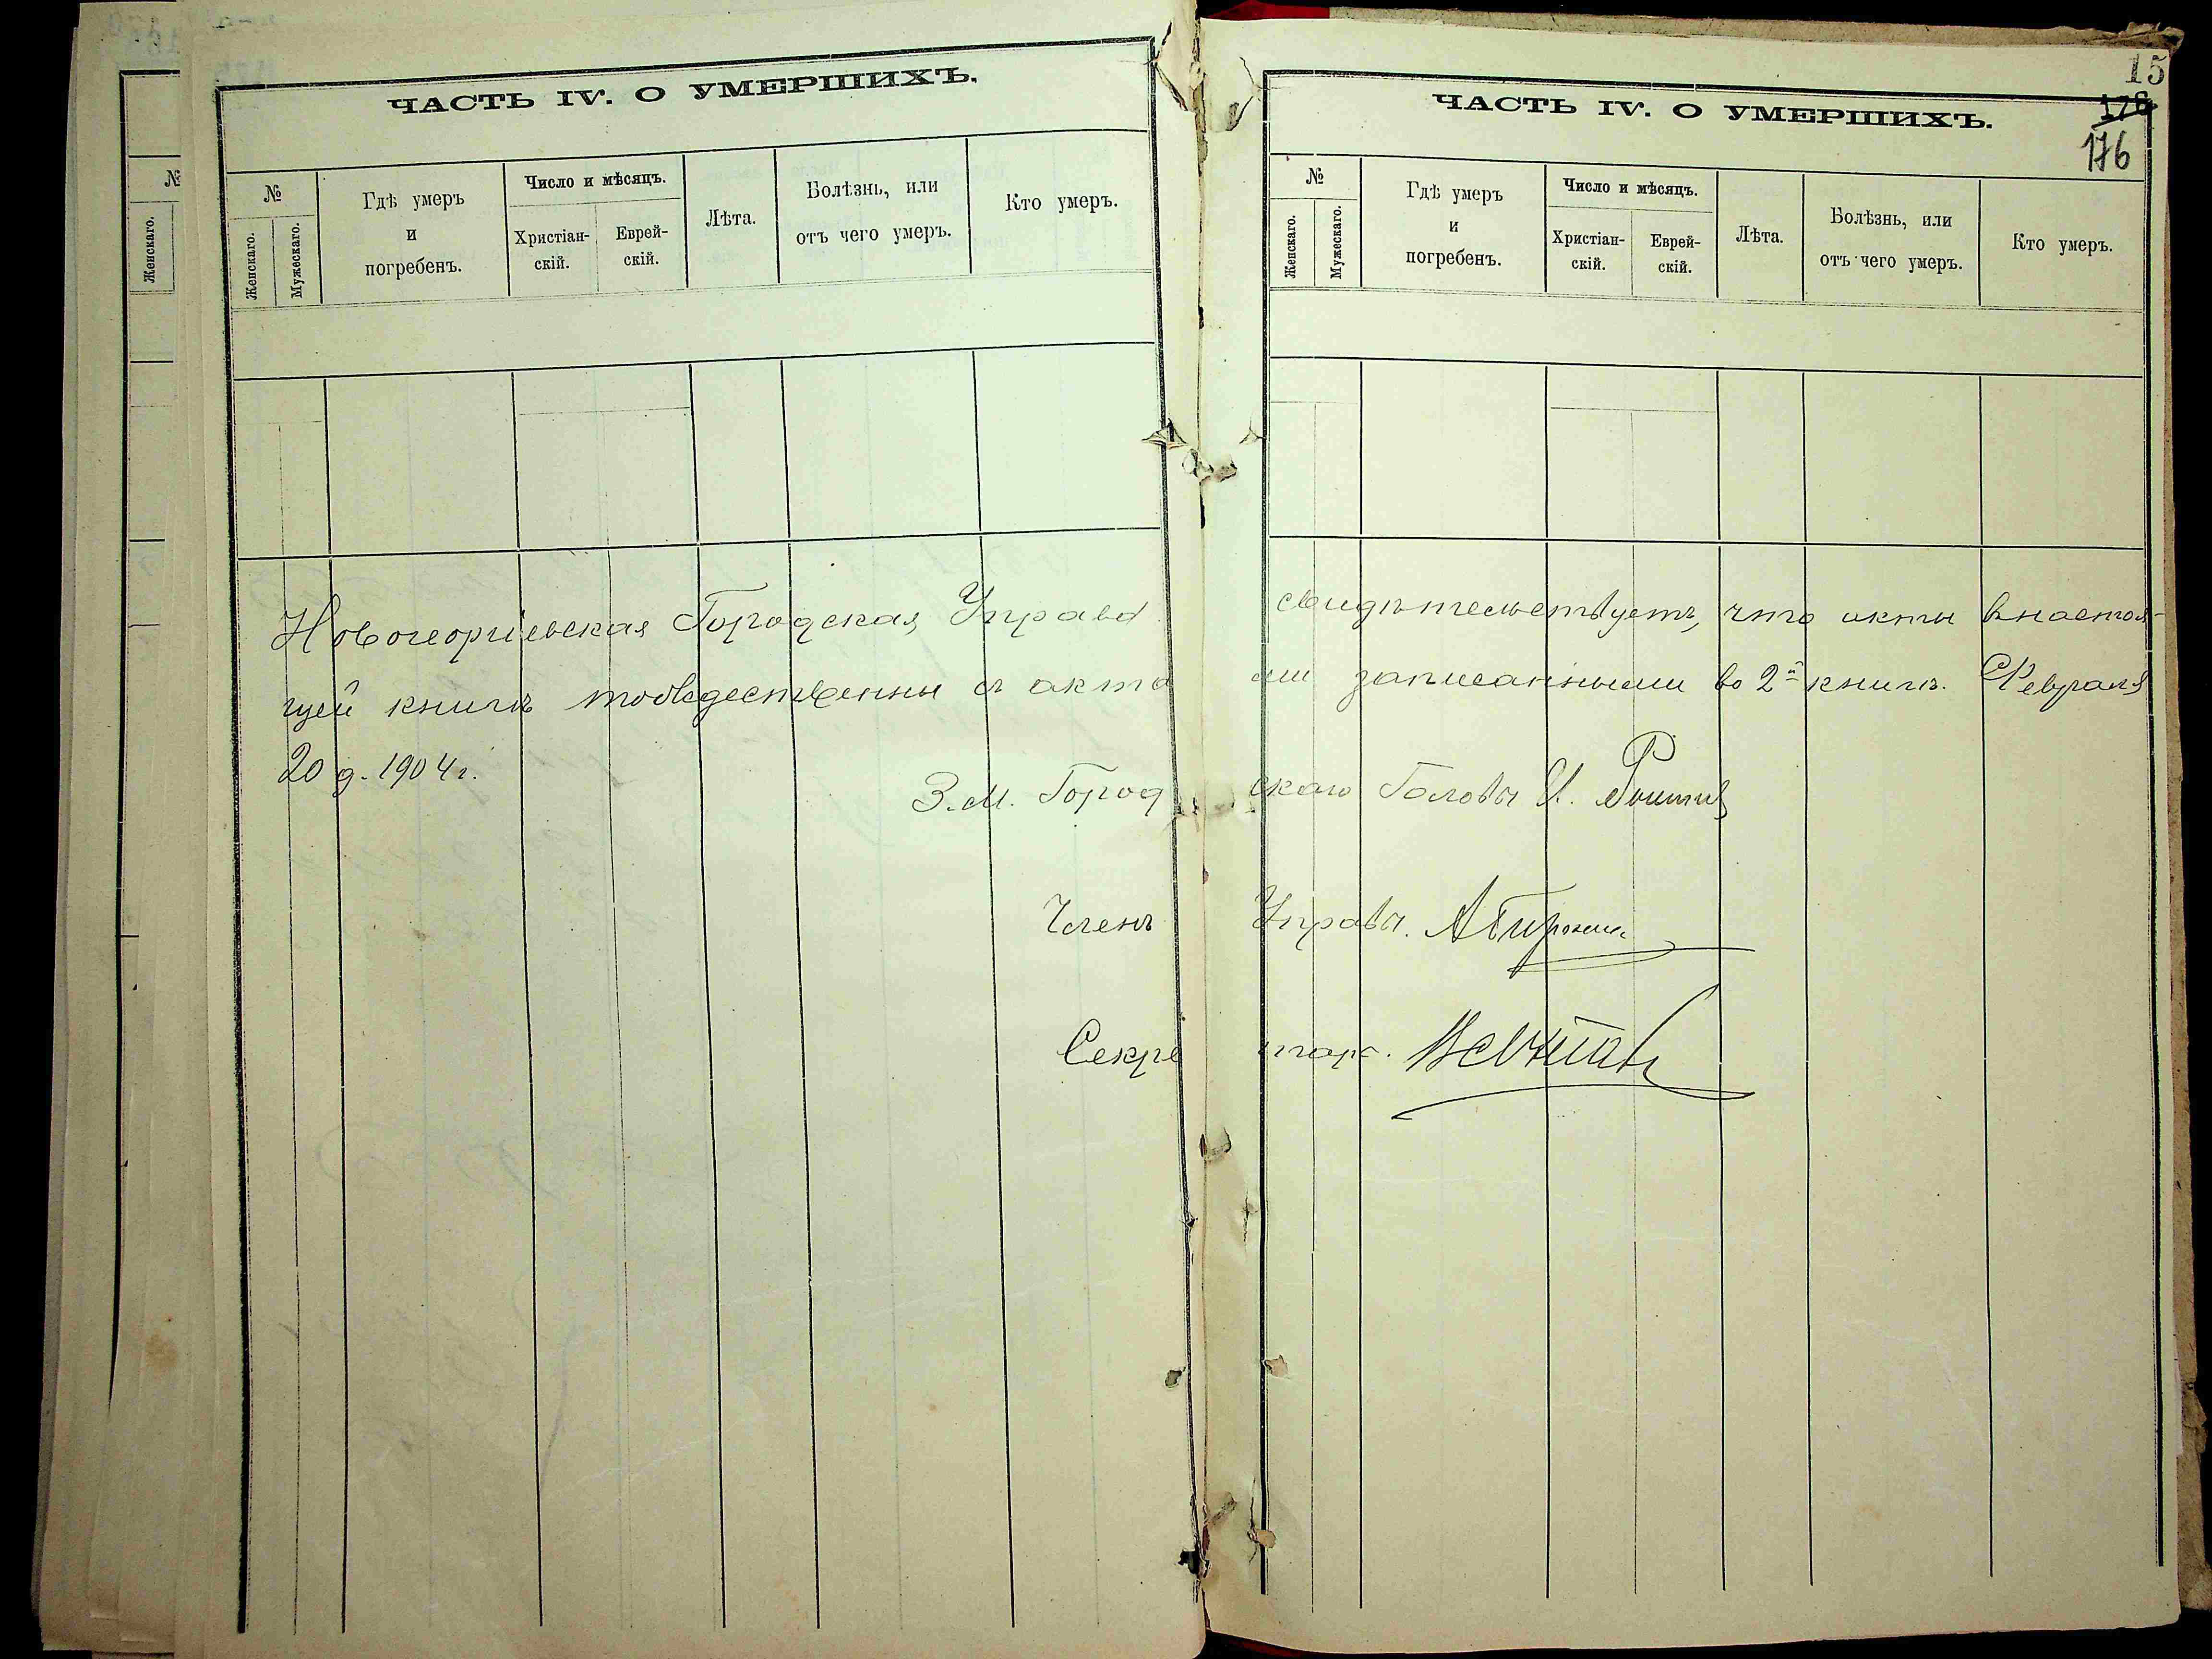 №
Женскаго.
ЧАСТЬ IV. О УМЕРШИХЪ.
№
Женскаго.
Мужескаго.
Гдѣ умеръ
и
погребенъ.
Число и мѣсяцъ.
Христіан-
скій.
Еврей-
скій.
Лѣта.
Болѣзнь, или
отъ чего умеръ.
Кто умеръ.
15
176
176
ЧАСТЬ IV. О УМЕРШИХЪ.
№
Женскаго.
Мужескаго.
Гдѣ умеръ
и
погребенъ.
Число и мѣсяцъ.
Христіан-
скій.
Еврей-
скій.
Лѣта.
Болѣзнь, или
отъ чего умеръ.
Кто умеръ.
Новогеоргіевская Городская Управа свидѣтельствуетъ, что акты в настоя-
щей книгѣ тождественны съ актами записанными во 2й книгѣ. Февраля
20 д. 1904 г.
З.М. Городскаго Головы И.
Членъ Управы.
Секретарь.